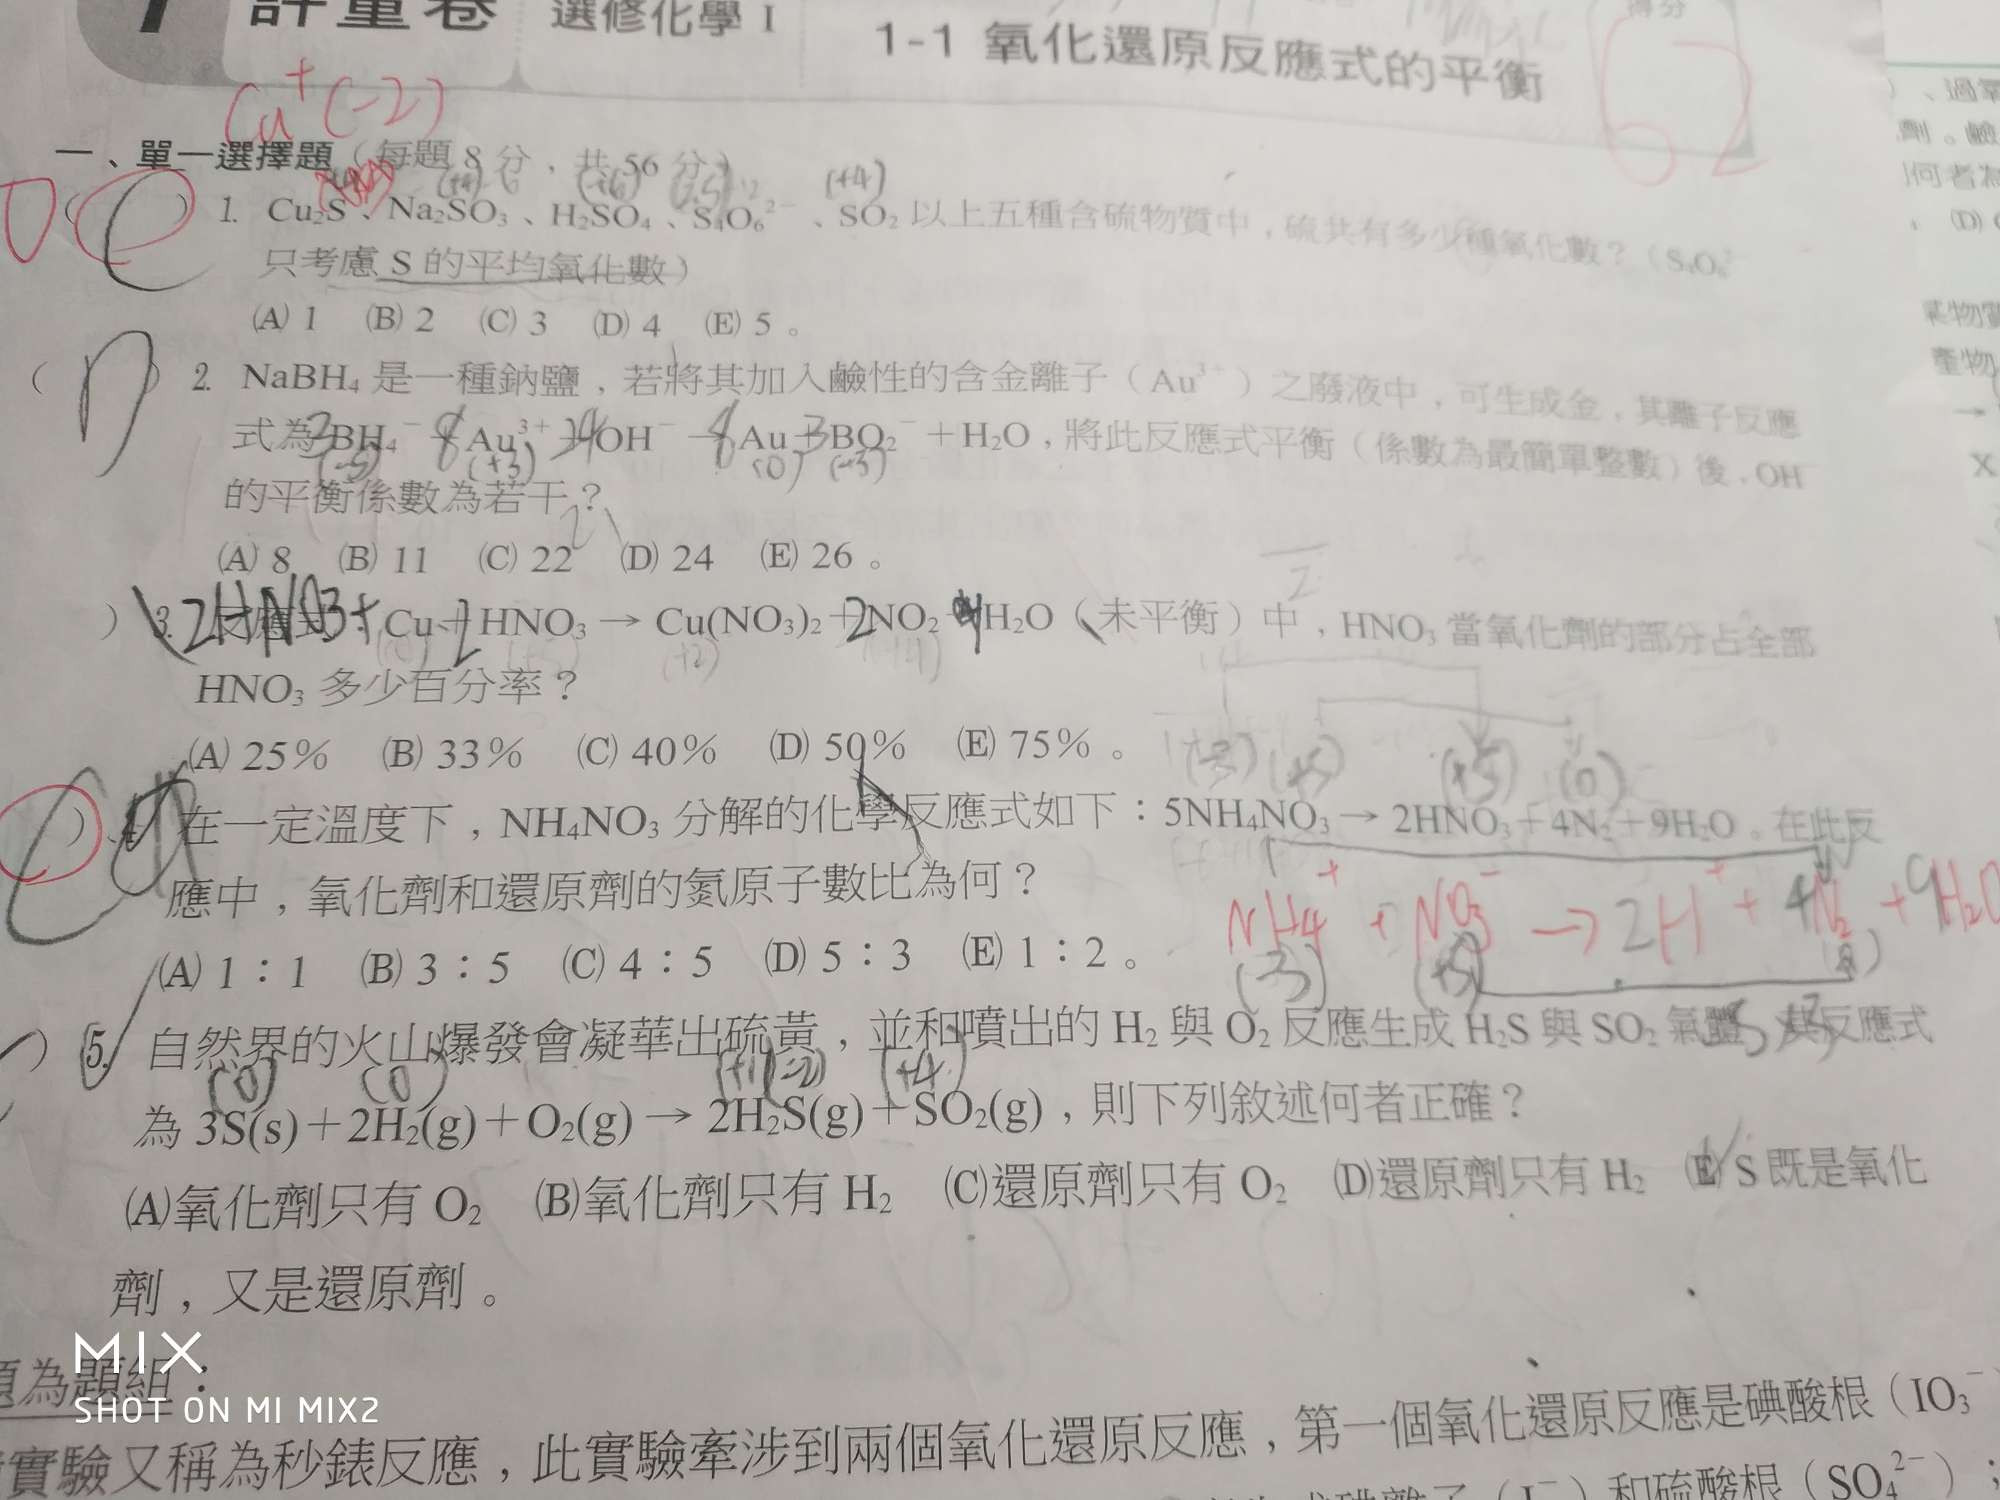 評量卷 選修化學 I 1-1 氧化還原反應式的平衡 得分
62
Cu⁺(-2)
一、單一選擇題（每題 8 分，共 56 分）
( ) 1. Cu₂S、Na₂SO₃、H₂SO₄、S₄O₆²⁻、SO₂ 以上五種含硫物質中，硫共有多少種氧化數？（S₄O₆²⁻
只考慮 S 的平均氧化數）
(A) 1 (B) 2 (C) 3 (D) 4 (E) 5。
( D ) 2. NaBH₄ 是一種鈉鹽，若將其加入鹼性的含金離子（Au³⁺）之廢液中，可生成金，其離子反應
式為 3BH₄⁻＋8Au³⁺＋24OH⁻→8Au＋3BO₂⁻＋H₂O，將此反應式平衡（係數為最簡單整數）後，OH
(-5) (+3) (0) (+3)
的平衡係數為若干？
(A) 8 (B) 11 (C) 22 (D) 24 (E) 26。
) 3. 反應式：2HNO3+ Cu＋2HNO₃→Cu(NO₃)₂＋2NO₂＋H₂O（未平衡）中，HNO₃ 當氧化劑的部分占全部
(+2) (+4)
HNO₃ 多少百分率？
(A) 25％ (B) 33％ (C) 40％ (D) 50％ (E) 75％。
(-3) (+5) (+5) (0)
) 4. 在一定溫度下，NH₄NO₃ 分解的化學反應式如下：5NH₄NO₃→2HNO₃＋4N₂＋9H₂O。在此反
應中，氧化劑和還原劑的氮原子數比為何？
NH4⁺ + NO3⁻ → 2H⁺ + 4N₂ + 9H₂O
(A) 1：1 (B) 3：5 (C) 4：5 (D) 5：3 (E) 1：2。
(-3) (+5)
) 5. 自然界的火山爆發會凝華出硫黃，並和噴出的 H₂ 與 O₂ 反應生成 H₂S 與 SO₂ 氣體，其反應式
(0) (0) (+1)(-2) (+4)
為 3S(s)＋2H₂(g)＋O₂(g)→2H₂S(g)＋SO₂(g)，則下列敘述何者正確？
(A)氧化劑只有 O₂ (B)氧化劑只有 H₂ (C)還原劑只有 O₂ (D)還原劑只有 H₂ (E) S 既是氧化
劑，又是還原劑。
題為題組：
實驗又稱為秒錶反應，此實驗牽涉到兩個氧化還原反應，第一個氧化還原反應是碘酸根（IO₃⁻
碘離子（I⁻）和硫酸根（SO₄²⁻）；
MIX
SHOT ON MI MIX2